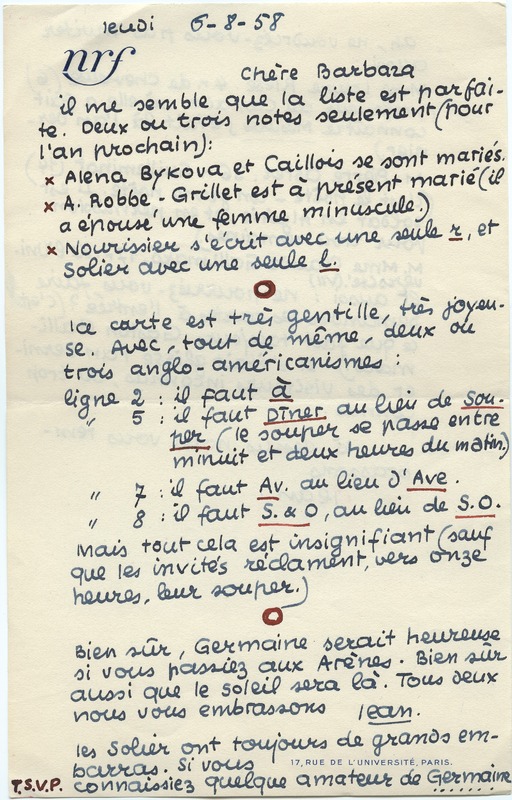 jeudi 6-8-58
nrf
Chère Barbara
il me semble que la liste est parfai-
te. Deux ou trois notes seulement (pour
l'an prochain):
x Alena Bykova et Caillois se sont mariés.
x A. Robbe-Grillet est à présent marié (il
a épousé une femme minuscule.)
x Nourissier s'écrit avec une seule r, et
Solier avec une seule l.
la carte est très gentille, très joyeu-
se. Avec, tout de même, deux ou
trois anglo-américanismes :
ligne 2 : il faut à
" 5 : il faut Dîner au lieu de Sou-
per (le souper se passe entre
minuit et deux heures du matin.)
" 7 : il faut Av. au lieu d'Ave.
" 8 : il faut S. & O, au lieu de S.O.
Mais tout cela est insignifiant (sauf
que les invités réclament, vers onze
heures, leur souper.)
Bien sûr, Germaine serait heureuse
si vous passiez aux Arènes. Bien sûr
aussi que le soleil sera là. Tous deux
nous vous embrassons Jean.
les Solier ont toujours de grands em-
barras. Si vous 17, RUE DE L'UNIVERSITÉ, PARIS.
T.S.V.P. connaissiez quelque amateur de Germaine